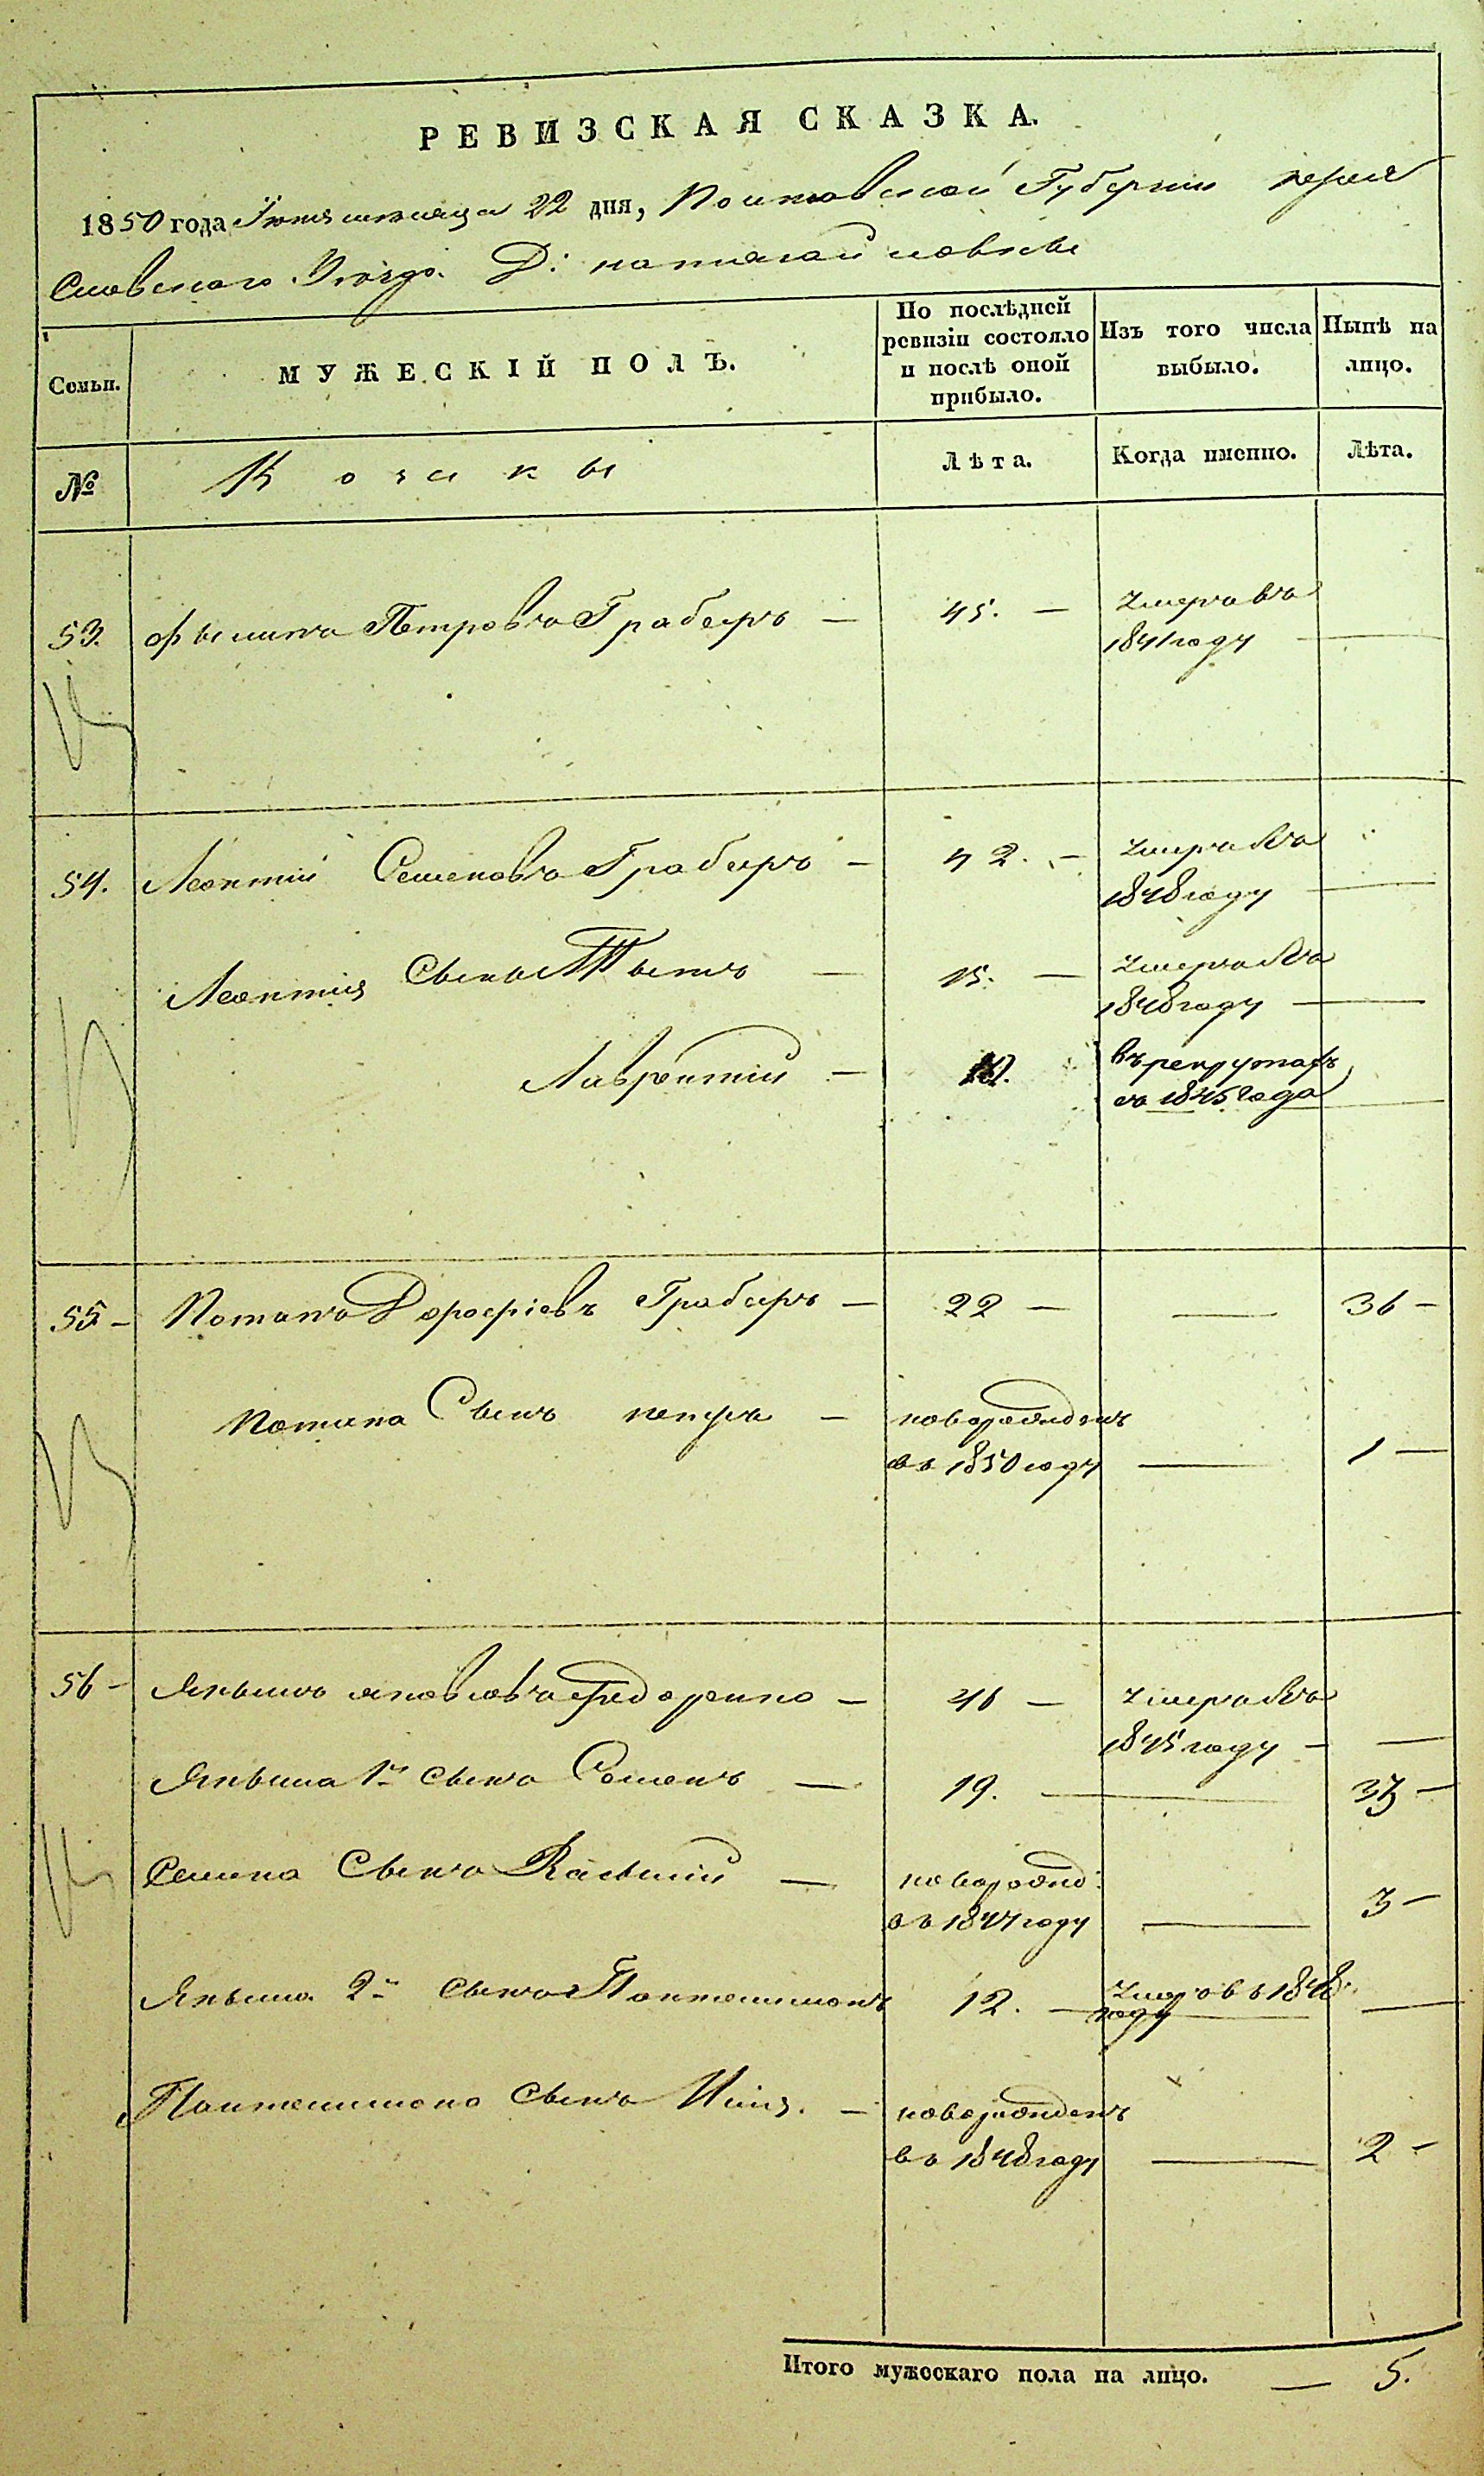 РЕВИЗСКАЯ СКАЗКА.
1850 года Іюня месяца 22 дня, Полтавской Губерніи переяс
славскаго Уезда Д:
Семьи.
МУЖЕСКІЙ ПОЛЪ.
По послѣдней ревизіи состояло и послѣ оной прибыло.
Изъ того числа выбыло.
Нынѣ на лицо.
№
Козаки
Лѣта.
Когда именно.
Лѣта.
53. Филипъ Петровъ Граберъ — 45. — умеръ въ
1841 году —
54. Леонтій Семеновъ Граберъ — 42. — умеръ въ
1848 году —
Леонтія Сынъ Титъ — 15. — умеръ въ
1848 году —
Лаврентій — въ рекрутахъ
съ 1845 года
55 — Потапъ Дорофіевъ Граберъ — 22 — — 36 —
Потапа Сынъ петръ — новорожденъ
въ 1850 году — 1 —
56 — Якимъ яковлевъ Федоренко — 46 — умеръ въ
1845 году — —
Якима 1й сынъ Семенъ — 19. — 33 —
Семена Сынъ Василій — новорожд:
въ 1847 году — 3 —
Якима 2й сынъ Пантелимонъ 12. — умеръ въ 1848
году —
Пантелимона сынъ Илія. — новорожденъ
въ 1848 году — 2 —
Итого мужескаго пола на лицо. — 5.